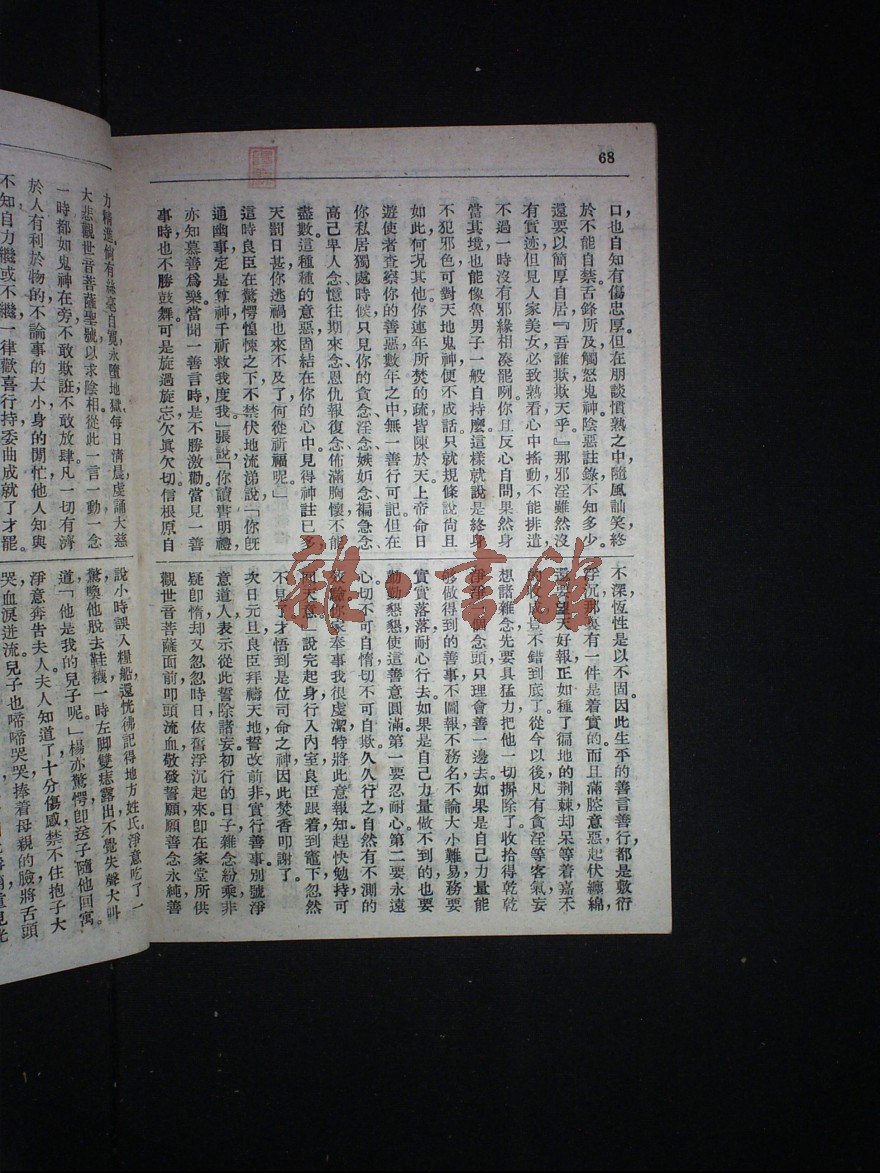 68
口，也自知有傷忠厚。但在朋談慣熟之中，隨風訕笑，終
於不能自禁。舌鋒所及，觸怒鬼神。陰惡註錄，不知多少。
還要以簡厚自居。『吾誰欺，欺天乎。』那邪淫雖然沒
有實迹，但見人家美女，必致熟看，心中搖動，不能排遣，
不過一時沒有邪緣相湊罷咧。你且反心自問，果然身
當其境，也能像魯男子一般自持麼。這樣，就說是終身
不犯邪色，可對天地鬼神，便不成話。只就規條說，尚且
如此，何況其他。你連年所焚的疏，皆陳於天上帝命日
遊使者，查察你的善惡，數年之中，無一善行可記。但在
你私居獨處時候，只見你的貪念、淫念、嫉妬念、褊急念、
高己卑人念、憶往期來念、恩仇報復念，佈滿胸懷，不能
盡數。這種種的意惡，固結在你的心中，見得神註已多，
天罰日甚，你逃禍也來不及了，何從祈福呢。」
這時良臣在驚愕惶悚之下，不禁伏地流涕，說，「你旣
通幽事，定是尊神，千祈救我度我。」張說，「你讀書明禮，
亦知慕善爲樂。當聞一善言時，是不勝激勸。當見一善
事時，也不勝鼓舞。可是旋過旋忘，欠眞欠切。信根原自
不深，恆性是以不固。因此生平的善言善行，都是敷衍
浮沉，那裏有一件是着實的。而且滿腔意惡，起伏纏綿，
還要望天好報，正如種了徧地的荆棘，却呆等着嘉禾
的收成，豈不錯到底了。從今以後，凡有貪淫等客氣妄
想諸雜念，先要具猛力，把他一切摒除了，收拾得乾乾
淨淨，個念頭，只理會善一邊去。如果是自己力量能
够做得到的善事，不圖報，不務名，不論大小難易，務要
實實落落，耐心行去。如果是自己力量做不到的，也要
勤勤懇懇，使這善意圓滿。第一要忍耐心，第二要永遠
心，切不可自惰，切不可自欺，久久行之，自然有不測的
效驗。你家奉事我，很虔潔，特將此意報知，趕快勉持，可
囘天意。」說完起身，行入內室，良臣跟着，到竈下忽然
不見了，才悟到是位司命之神，因此焚香叩謝了。
次日元旦，良臣拜禱天地，誓改前非，實行善事，別號淨
意道人，表示從此誓除諸妄。初行的日子，雜念紛乘，非
疑卽惰，却又忽忽時日，依舊浮沉起來。卽在家堂所供
觀世音菩薩面前，叩頭流血，敬發誓願，願善念永純，善
力精進，倘有絲毫自寬，永墮地獄。每日淸晨，虔誦大慈
大悲觀世音菩薩聖號，以求陰相。從此一言一動，一念
一時，都如鬼神在旁，不敢欺誑，不敢放肆。凡一切有濟
於人，有利於物的，不論事的大小，身的閒忙，他人知與
不知，自力繼或不繼，一律歡喜行持，委曲成就了才罷。
說小時誤入糧船，還恍佛記得地方姓氏。淨意吃了一
驚，喚他脫去鞋襪，一時左脚雙痣露出，不覺失聲大叫
道，「他是我的兒子呢。」楊亦驚愕，卽送子隨他囘寓。
淨意奔告夫人，夫人知道了，十分傷感，禁不住抱子大
哭，血淚迸流。兒子也啼啼哭哭，捧着母親的臉，將舌頭
雜·書館